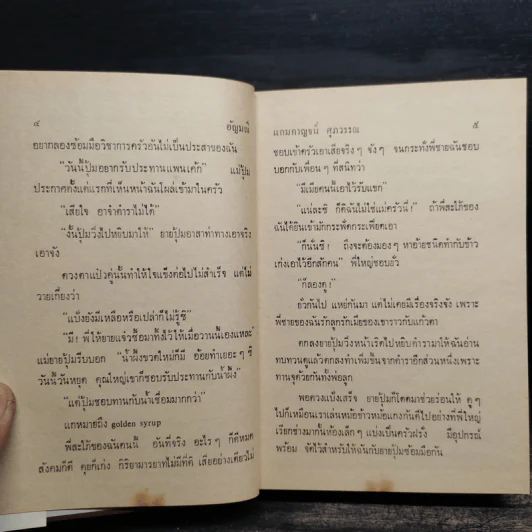 ๔ อัญมณี
อยากลองซ้อมมือวิชาการครัวอันไม่เป็นประสาของฉัน
“วันนี้ปุ้มอยากรับประทานแพนเค้ก” แม่ปุ้ม
ประกาศตั้งแต่แรกที่เห็นหน้าฉันโผล่เข้ามาในครัว
“เสียใจ อาจำตำราไม่ได้”
“งั้นปุ้มวิ่งไปหยิบมาให้” ยายปุ้มอาสาท่าทางเอาจริง
เอาจัง
ดวงตาแป๋วคู่นั้นทำให้ใจแข็งต่อไปไม่สำเร็จ แต่ไม่
วายเกี่ยงว่า
“แป้งยังมีเหลือหรือเปล่าก็ไม่รู้ซิ”
“มี! พี่ให้ยายแจ๋วซื้อมาทิ้งไว้ให้เมื่อวานนี้เองแหละ”
แม่ยายปุ้มรีบบอก “น้ำผึ้งขวดใหม่ก็มี อ้อยทำเยอะๆ ซิ
วันนี้วันหยุด คุณใหญ่เขาก็ชอบรับประทานกับน้ำผึ้ง”
“แต่ปุ้มชอบทานกับน้ำเชื่อมมากกว่า”
แกหมายถึง golden syrup
พี่สะใภ้ของฉันคนนี้ อันที่จริง อะไรๆ ก็ดีหมด
สังคมก็ดี คุยก็เก่ง กิริยามารยาทไม่มีที่ติ เสียอย่างเดียวไม่
แถมกาญจน์ ศุภวรรณ ๕
ชอบเข้าครัวเอาเสียจริงๆ จังๆ จนกระทั่งพี่ชายฉันชอบ
บอกกับเพื่อนๆ ที่สนิทว่า
“มีเมียคนนี้เอาไว้รับแขก”
“แน่ละซิ ก็ดิฉันไม่ใช่แม่ครัวนี่!” ถ้าพี่สะใภ้ของ
ฉันได้ยินเข้ามักกระฟัดกระเฟียดเอา
“ก็นั่นซี! ถึงจะต้องมองๆ หาอ้ายชนิดทำกับข้าว
เก่งเอาไว้อีกสักคน” พี่ใหญ่ชอบยั่ว
“ก็ลองดู!”
ยั่วกันไป แหย่กันมา แต่ไม่เคยมีเรื่องจริงจัง เพราะ
พี่ชายของฉันรักลูกรักเมียของเขาราวกับแก้วตา
ตกลงยายปุ้มวิ่งหน้าเริดไปหยิบตำรามาให้ฉันอ่าน
ทบทวนดูแล้วตกลงทำเพิ่มขึ้นจากตำราอีกส่วนหนึ่งเพราะ
ทานจุด้วยกันทั้งพ่อลูก
พอตวงแป้งเสร็จ ยายปุ้มก็โดดมาช่วยร่อนให้ ดูๆ
ไปก็เหมือนเราเล่นหม้อข้าวหม้อแกงกันดีไปอย่างที่พี่ใหญ่
เรียกช่างมากั้นห้องเล็กๆ แบ่งเป็นครัวฝรั่ง มีอุปกรณ์
พร้อม จัดไว้สำหรับให้ฉันกับยายปุ้มซ้อมมือกัน